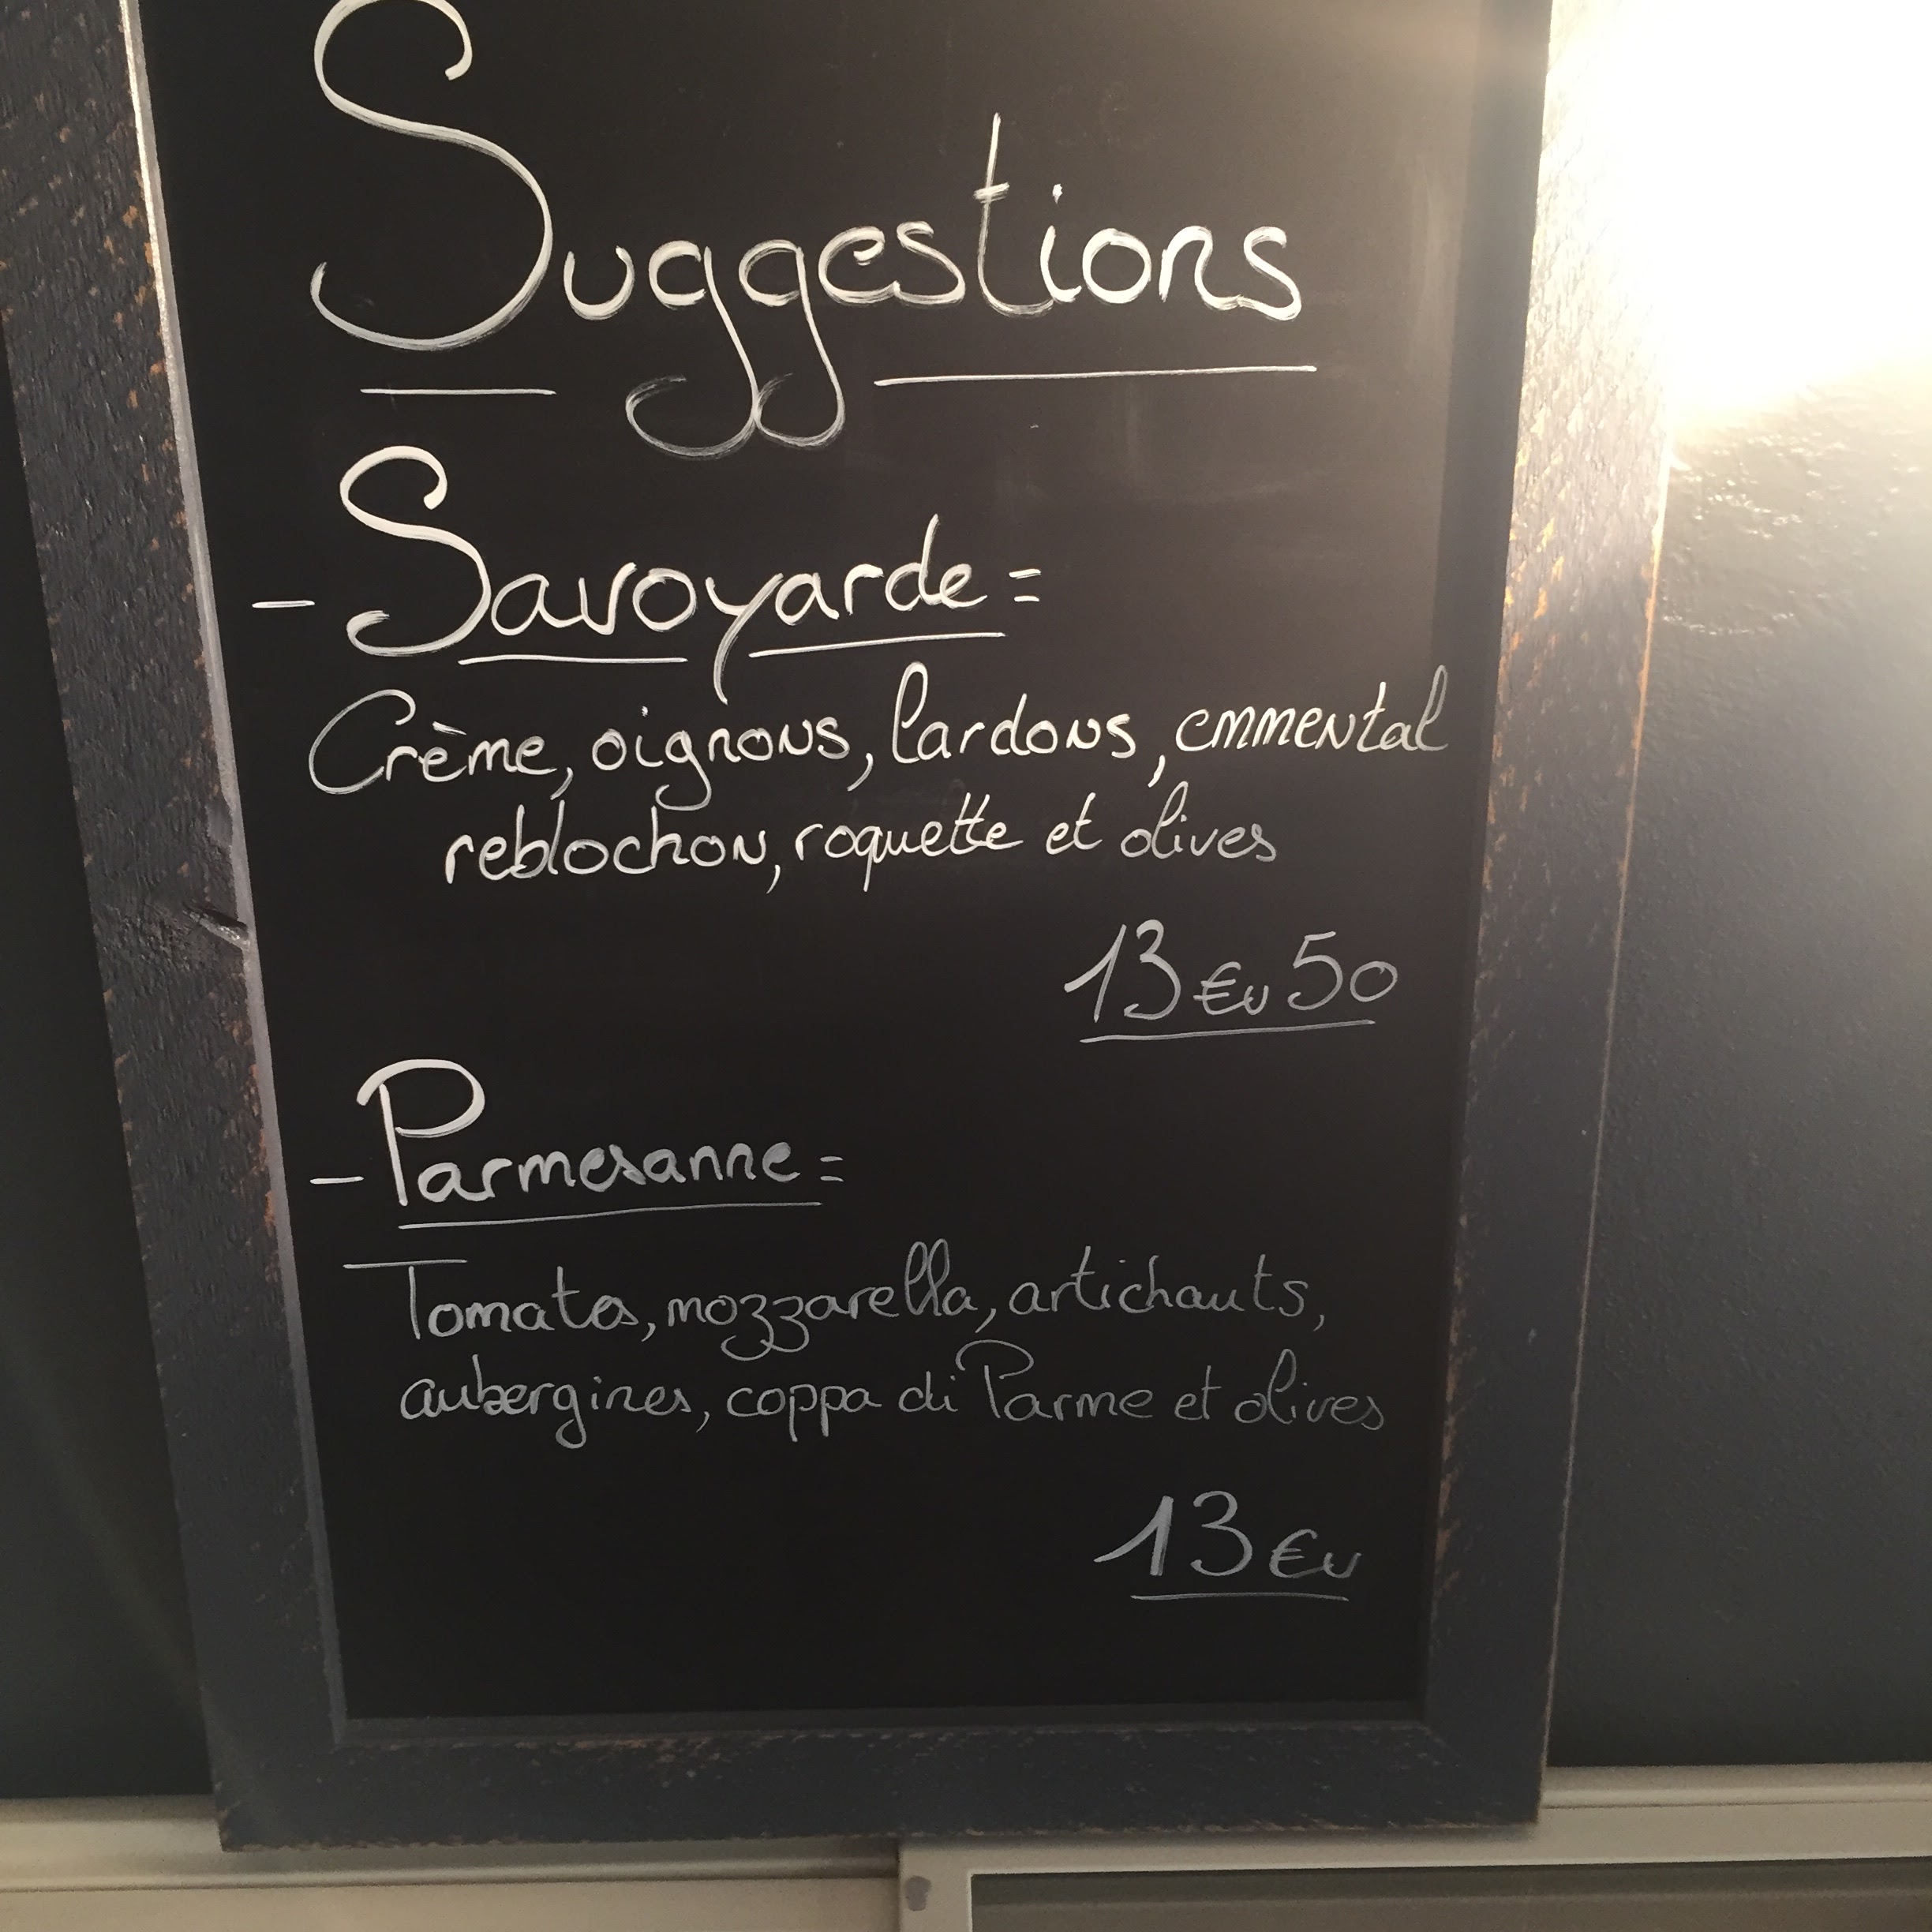 Suggestions
- Savoyarde =
Crème, oignons, lardons, emmental
reblochon, roquette et olives
13 €u 50
- Parmesanne =
Tomates, mozzarella, artichauts,
aubergines, coppa di Parme et olives
13 €u